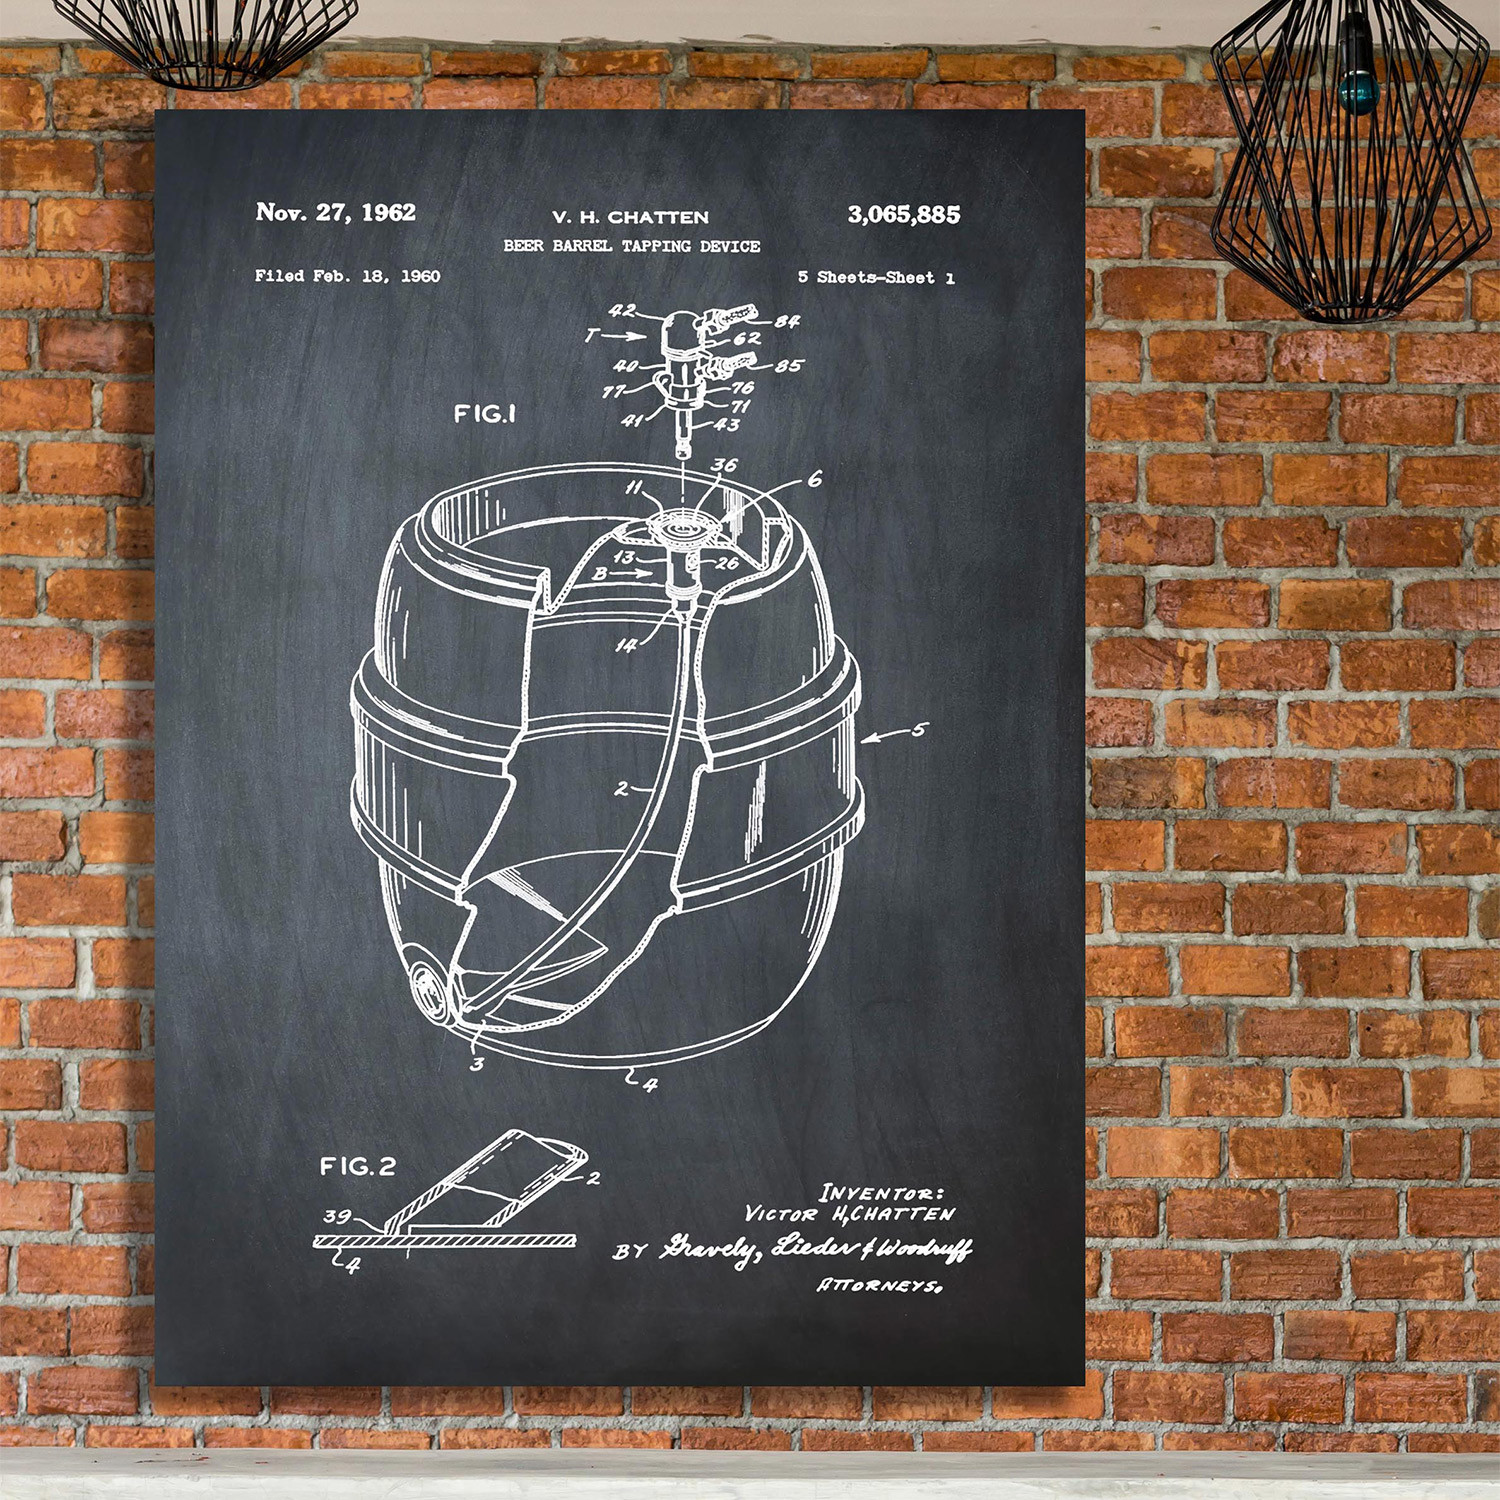 Nov. 27, 1962
V. H. CHATTEN
3,065,885
BEER BARREL TAPPING DEVICE
Filed Feb. 18, 1960
5 Sheets-Sheet 1
42
84
T
62
40
85
77
76
71
41
43
FIG.1
36
11
6
13
26
B
14
5
2
3
4
FIG.2
2
39
4
INVENTOR:
VICTOR H. CHATTEN
BY Gravely, Lieder & Woodruff
ATTORNEYS.